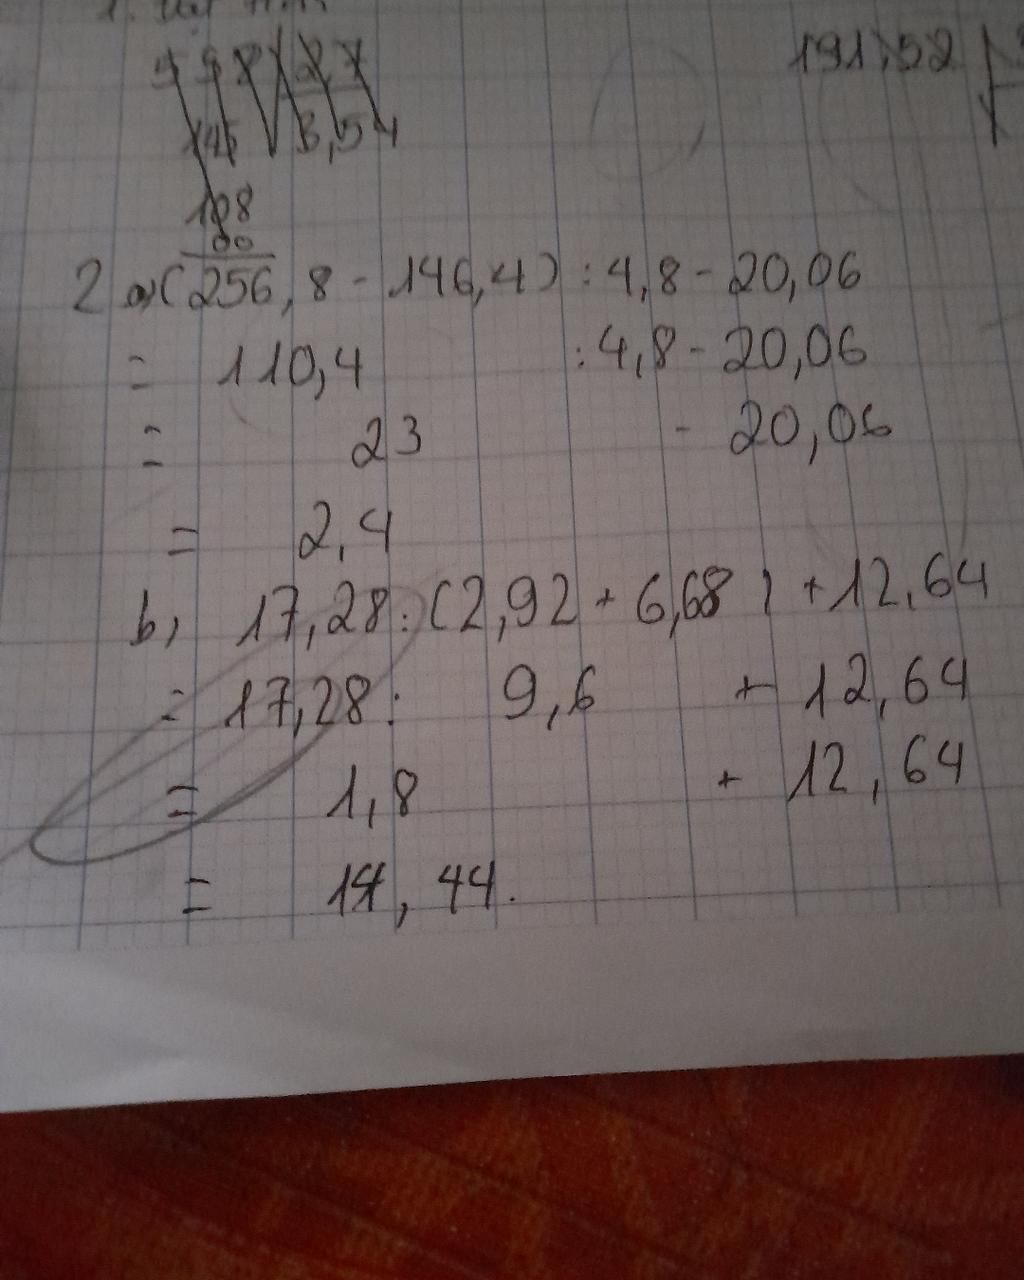 191,52
198
00
2 a, (256,8 - 146,4) : 4,8 - 20,06
= 110,4 : 4,8 - 20,06
= 23 - 20,06
= 2,4
b, 17,28 : (2,92 + 6,68) + 12,64
= 17,28 : 9,6 + 12,64
= 1,8 + 12,64
= 14,44.